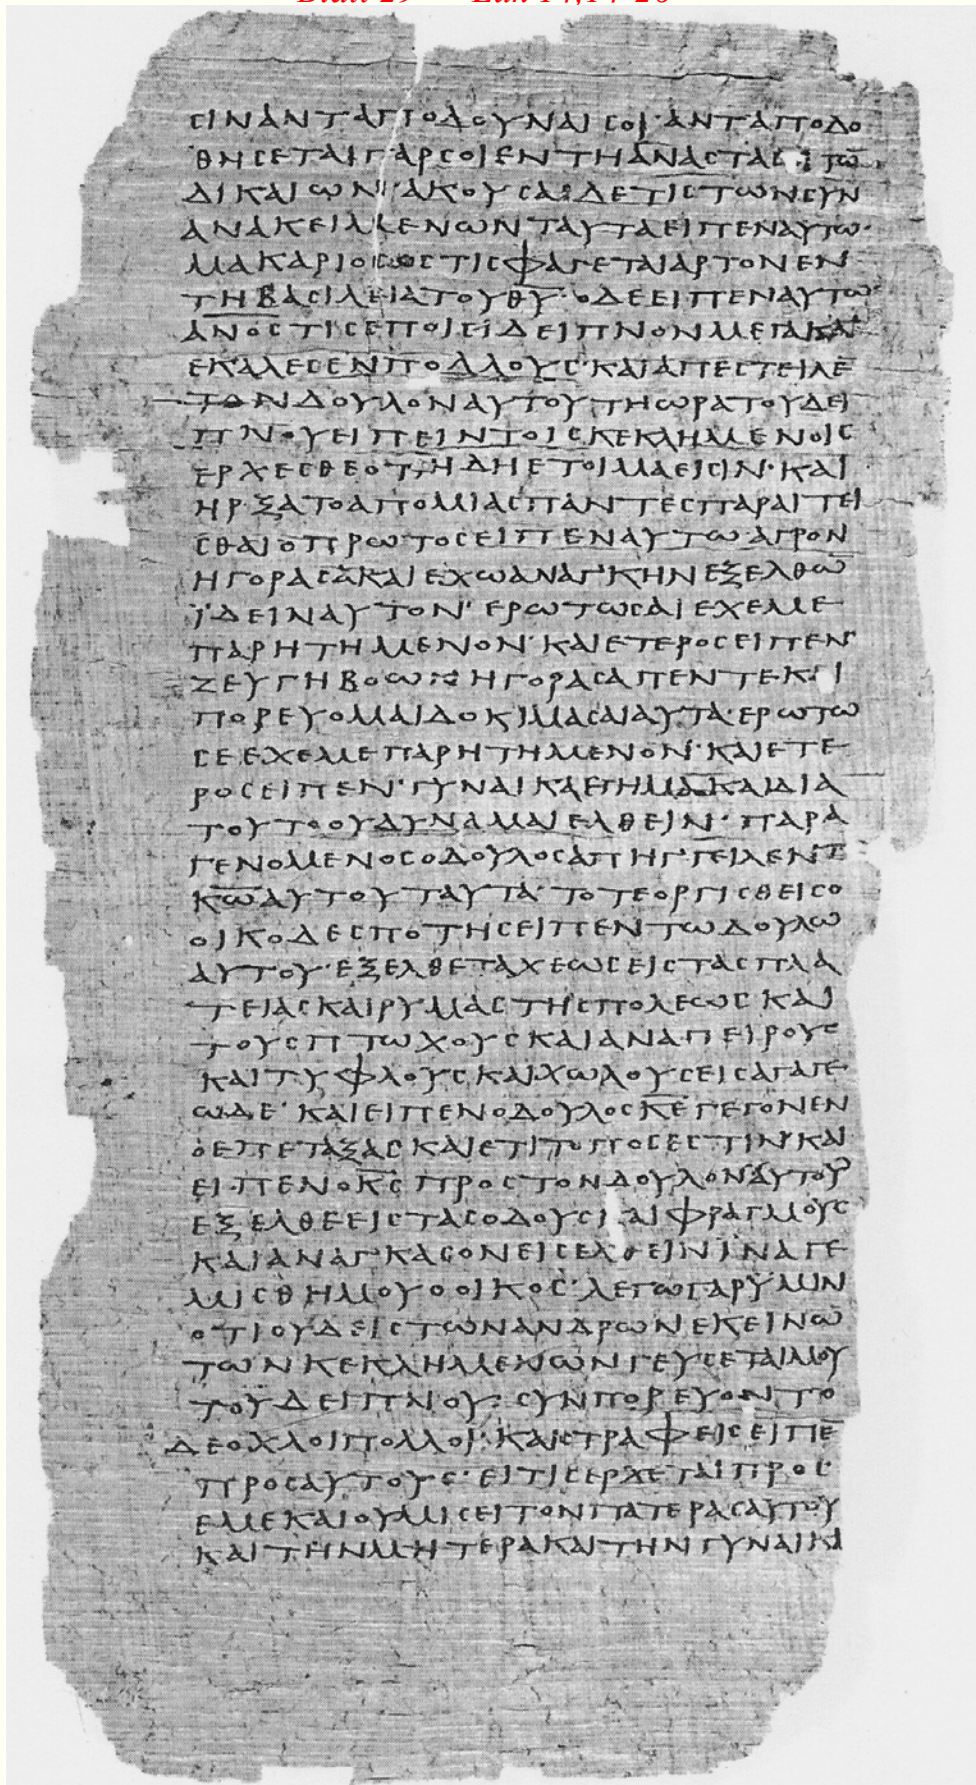 Blatt 29 Luk 14,14-26
ϹΙΝΑΝΤΑΠΟΔΟΥΝΑΙϹΟΙ·ΑΝΤΑΠΟΔΟ
ΘΗϹΕΤΑΙΓΑΡϹΟΙΕΝΤΗΑΝΑϹΤΑϹΙΤΩ̅
ΔΙΚΑΙΩΝ·ΑΚΟΥϹΑϹΔΕΤΙϹΤΩΝϹΥΝ
ΑΝΑΚΕΙΜΕΝΩΝΤΑΥΤΑΕΙΠΕΝΑΥΤΩ·
ΜΑΚΑΡΙΟϹΟϹΤΙϹΦΑΓΕΤΑΙΑΡΤΟΝΕΝ
ΤΗΒΑϹΙΛΕΙΑΤΟΥΘ̅Υ̅·ΟΔΕΕΙΠΕΝΑΥΤΩ
Α̅Ν̅Ο̅Ϲ̅ΤΙϹΕΠΟΙΕΙΔΕΙΠΝΟΝΜΕΓΑΚΑΙ
ΕΚΑΛΕϹΕΝΠΟΛΛΟΥϹ·ΚΑΙΑΠΕϹΤΕΙΛΕ̅
ΤΟΝΔΟΥΛΟΝΑΥΤΟΥΤΗΩΡΑΤΟΥΔΕΙ
ΠΝΟΥΕΙΠΕΙΝΤΟΙϹΚΕΚΛΗΜΕΝΟΙϹ
ΕΡΧΕϹΘΕΟΤΙΗΔΗΕΤΟΙΜΑΕΙϹΙΝ·ΚΑΙ
ΗΡΞΑΤΟΑΠΟΜΙΑϹΠΑΝΤΕϹΠΑΡΑΙΤΕΙ
ϹΘΑΙΟΠΡΩΤΟϹΕΙΠΕΝΑΥΤΩΑΓΡΟΝ
ΗΓΟΡΑϹΑΚΑΙΕΧΩΑΝΑΓ'ΚΗΝΕΞΕΛΘΩ̅
ΪΔΕΙΝΑΥΤΟΝ·ΕΡΩΤΩϹΑΙΕΧΕΜΕ
ΠΑΡΗΤΗΜΕΝΟΝ·ΚΑΙΕΤΕΡΟϹΕΙΠΕΝ·
ΖΕΥΓΗΒΟΩΝΗΓΟΡΑϹΑΠΕΝΤΕΚΑΙ
ΠΟΡΕΥΟΜΑΙΔΟΚΙΜΑϹΑΙΑΥΤΑ·ΕΡΩΤΩ
ϹΕΕΧΕΜΕΠΑΡΗΤΗΜΕΝΟΝ·ΚΑΙΕΤΕ
ΡΟϹΕΙΠΕΝ·ΓΥΝΑΙΚΑΕΓΗΜΑΚΑΙΔΙΑ
ΤΟΥΤΟΟΥΔΥΝΑΜΑΙΕΛΘΕΙΝ·ΠΑΡΑ
ΓΕΝΟΜΕΝΟϹΟΔΟΥΛΟϹΑΠΗΓ'ΓΕΙΛΕΝΤ
Κ̅Ω̅ΑΥΤΟΥΤΑΥΤΑ·ΤΟΤΕΟΡΓΙϹΘΕΙϹΟ
ΟΙΚΟΔΕϹΠΟΤΗϹΕΙΠΕΝΤΩΔΟΥΛΩ
ΑΥΤΟΥ·ΕΞΕΛΘΕΤΑΧΕΩϹΕΙϹΤΑϹΠΛΑ
ΤΕΙΑϹΚΑΙΡΥΜΑϹΤΗϹΠΟΛΕΩϹΚΑΙ
ΤΟΥϹΠΤΩΧΟΥϹΚΑΙΑΝΑΠΕΙΡΟΥϹ
ΚΑΙΤΥΦΛΟΥϹΚΑΙΧΩΛΟΥϹΕΙϹΑΓΑΓΕ
ΩΔΕ·ΚΑΙΕΙΠΕΝΟΔΟΥΛΟϹΚ̅Ε̅ΓΕΓΟΝΕΝ
ΟΕΠΕΤΑΞΑϹΚΑΙΕΤΙΤΟΠΟϹΕϹΤΙΝ·ΚΑΙ
ΕΙΠΕΝΟΚ̅Ϲ̅ΠΡΟϹΤΟΝΔΟΥΛΟΝΑΥΤΟΥ
ΕΞΕΛΘΕΕΙϹΤΑϹΟΔΟΥϹΚΑΙΦΡΑΓΜΟΥϹ
ΚΑΙΑΝΑΓ'ΚΑϹΟΝΕΙϹΕΛΘΕΙΝΙΝΑΓΕ
ΜΙϹΘΗΜΟΥΟΟΙΚΟϹ·ΛΕΓΩΓΑΡΥΜΙΝ
ΟΤΙΟΥΔΕΙϹΤΩΝΑΝΔΡΩΝΕΚΕΙΝΩ̅
ΤΩΝΚΕΚΛΗΜΕΝΩΝΓΕΥϹΕΤΑΙΜΟΥ
ΤΟΥΔΕΙΠΝΟΥ:ϹΥΝΠΟΡΕΥΟΝΤΟ
ΔΕΟΧΛΟΙΠΟΛΛΟΙ·ΚΑΙϹΤΡΑΦΕΙϹΕΙΠΕ̅
ΠΡΟϹΑΥΤΟΥϹ·ΕΙΤΙϹΕΡΧΕΤΑΙΠΡΟϹ
ΕΜΕΚΑΙΟΥΜΙϹΕΙΤΟΝΠΑΤΕΡΑϹΑΥΤΟΥ
ΚΑΙΤΗΝΜΗΤΕΡΑΚΑΙΤΗΝΓΥΝΑΙΚΑ